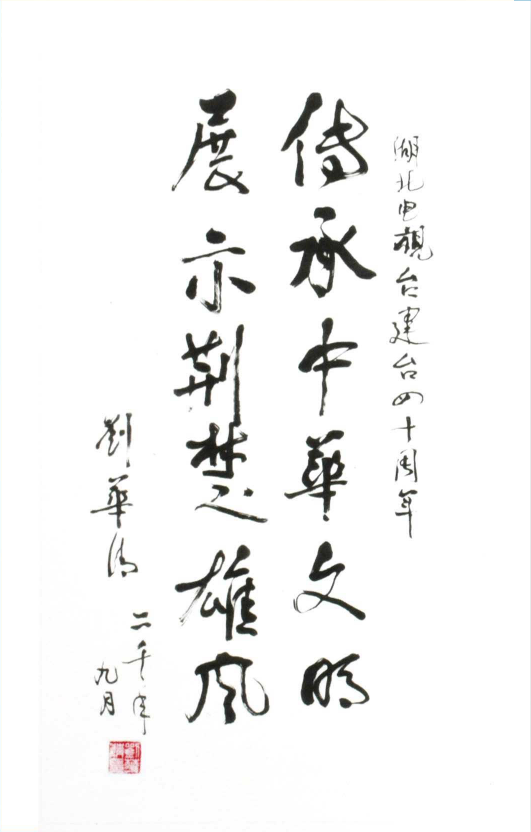 湖北电视台建台四十周年
传承中華文明
展示荆楚雄风
劉華清
二千年
九月